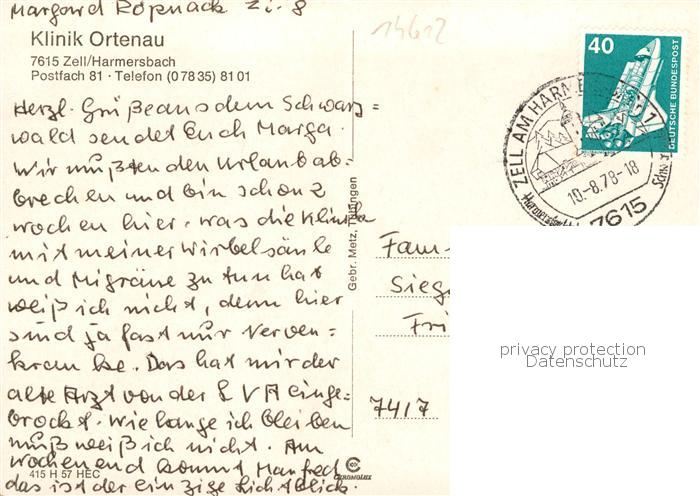 Margard Röpnack Zi. 8
14612
Klinik Ortenau
7615 Zell/Harmersbach
Postfach 81 · Telefon (0 78 35) 81 01
Herzl. Grüße aus dem Schwarz=
wald sendet Euch Marga.
Wir mußten den Urlaub ab-
brechen und bin schon 2
Wochen hier. was die Klinik
mit meiner Wirbelsäule
und Migräne zu tun hat
weiß ich nicht, denn hier
sind ja fast nur Nerven=
kranke. Das hat mir der
alte Arzt von der LVA einge-
brockt. Wie lange ich bleiben
muß weiß ich nicht. Am
Wochenend kommt Manfred
das ist der einzige Lichtblick.
415 H 57 HEC
Gebr. Metz, Tübingen
CHROMOLUX
40
DEUTSCHE BUNDESPOST
ZELL AM HARME
1
10.-8.78-18
7615
Fam.
Sieg
Fri
7417
privacy protection
Datenschutz